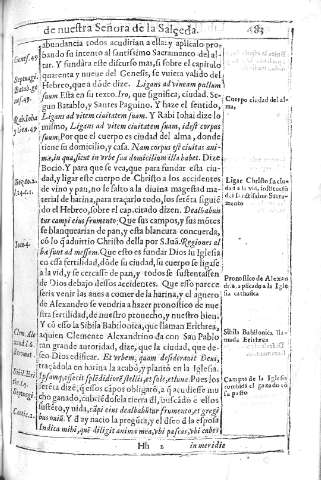 de nuestra Señora de la Salçeda. 483
abundancia todos acudirian a ella: y aplicalo pro-
bando su intento al santissimo Sacramento del al-
tar. Y fundára este discurso mas, si sobre el capitulo
quarenta y nueue del Genesis, se vuiera valido del
Hebreo, que a dóde dize. Ligans ad vineam pullum
suum. Esta en su texto. Iro, que significa, ciudad. Se-
gun Batablo, y Santes Paguino. Y haze el sentido,
Ligans ad vitem ciuitatem suam. Y Rabi Iohai dize lo
mismo, Ligans ad vitem ciuitatem suam, idest corpus
suum. Por que el cuerpo es ciudad del alma, donde
tiene su domicilio, y casa. Nam corpus est ciuitas ani-
mæ, in qua, sicut in vrbe sua domicilium illa habet. Dize
Bocio. Y para que se vea, que para fundar esta ciu-
dad, y ligar este cuerpo de Christo a los accidentes
de vino y pan, no le falto a la diuina magestad ma-
terial de harina, para traçarlo todo, los setéta siguié
do el Hebreo, sobre el cap. citado dizen. Dealbabun
tur campi eius frumento. Que sus campos, y sus môtes
se blanquearian de pan, y esta blancura concuerda,
có lo q̃ aduirtio Christo della por S. Iuā. Regiones al
bæ sunt ad messem. Que esto es fundar Dios su Iglesia
en essa fertilidad, dóde su ciudad, su cuerpo se ligasse
a la vid, y se cercasse de pan, y todos se sustentassen
de Dios debajo dessos accidentes. Que esso parece
seris venir las aues a comer de la harina, y el agnero
de Alexandro se vendria a hazer pronostico de nue
stra fertilidad, de nuestro prouecho, y nuestro bien.
Y có esso la Sibila Babilonica, que llaman Erithrea,
aquien Clemente Alexandrino da con San Pablo
tan grande autoridad, dize, que la ciudad, que de-
seo Dios edificar. Et vrbem, quam desiderauit Deus,
traçadola en harina la acabó, y plantó en la Iglesia.
Pues los
setéta dizé, q̃ essos cápos obligaró, a q̃ acudiesse mu
cho ganado, cubriédose la tierra dl, buscádo e ellos
sustéto, y vida,
bus ouiū. Y d ay nacio la pregúta, y el desseo d la esposa
Indica mihi, quē diligit anima mea, vbi pasces, vbi cubes
Hh 2 in meridie
Genes. 49
Iuan 4.
Cuerpo ciudad del al-
ma,
Ligar Christo su ciu-
dad a la vid, instituciō
del santissimo Sacra-
mento
Pronostico de Alexan
dro, aplicado a la Igle
sia catholica
Sibila Babilonica, lla-
mada Erithrea
Campos de la Iglesia
combida al ganado có
su pasto